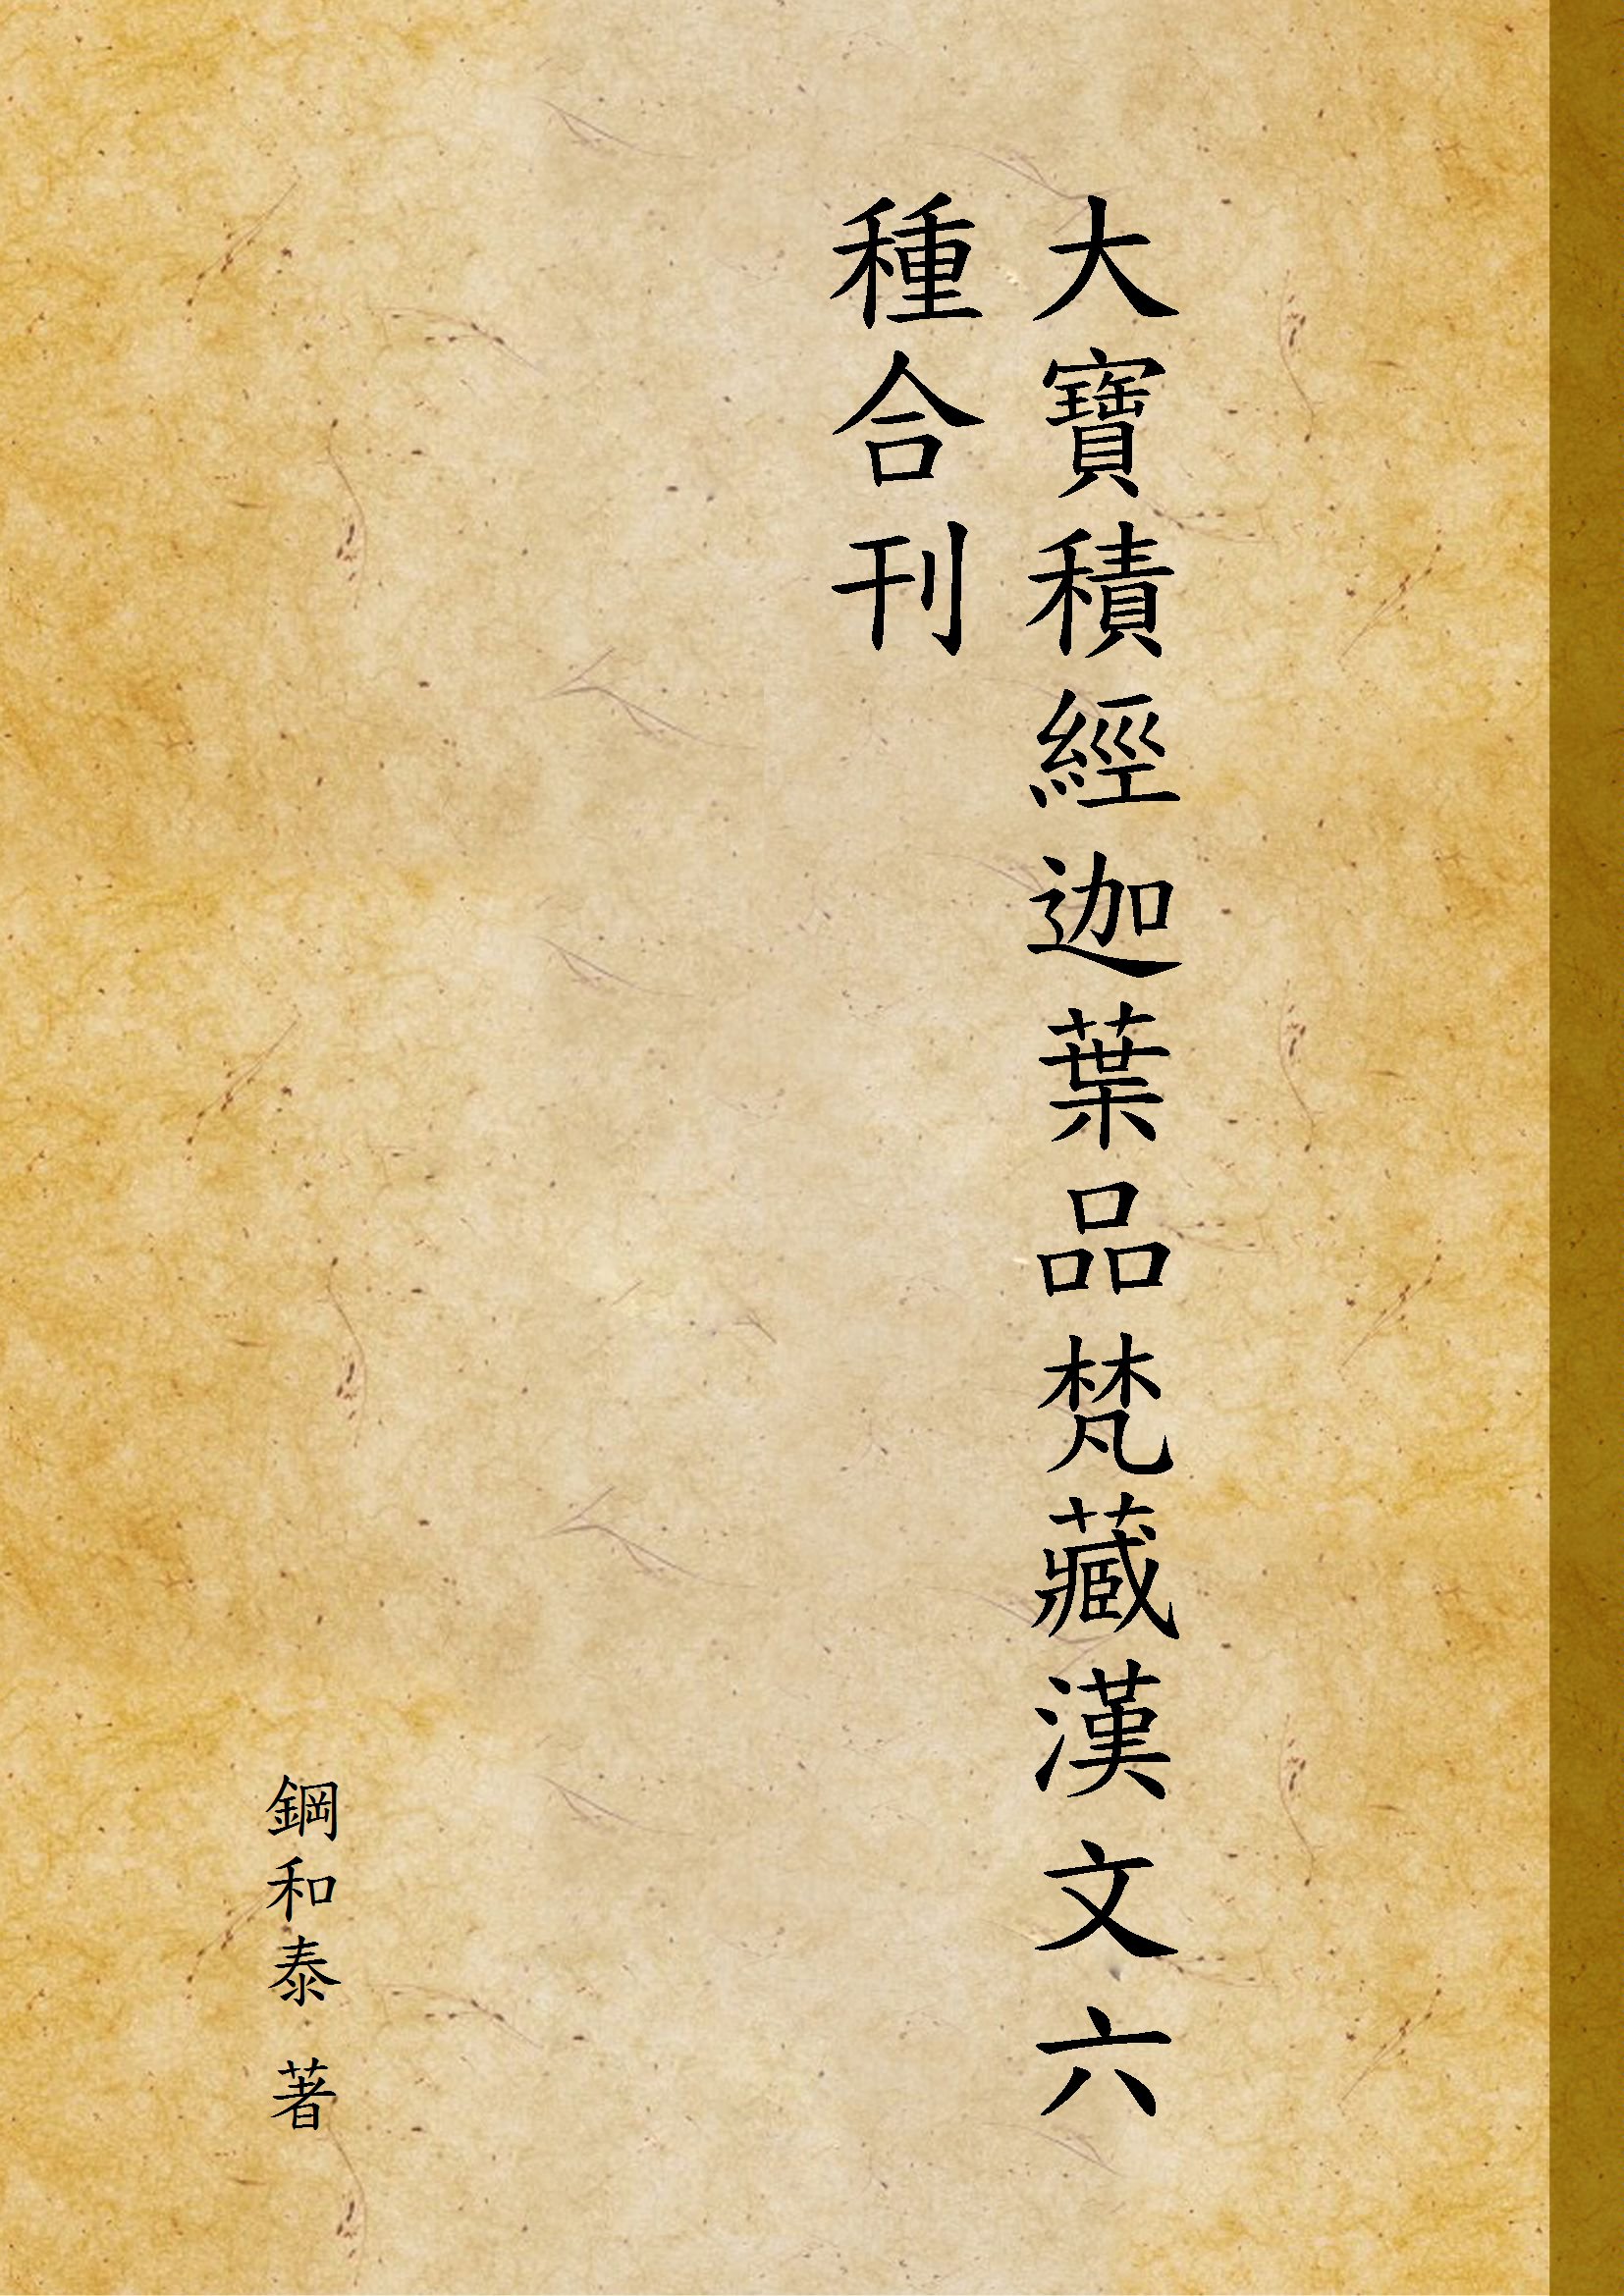 大寶積經迦葉品梵藏漢文六
種合刊
鋼和泰 著